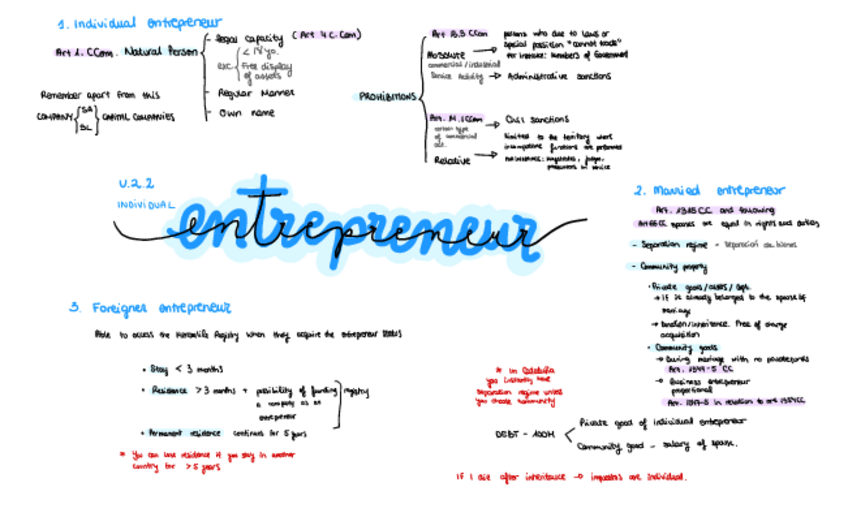 1. Individual entrepreneur
Art 1. CCom. Natural Person
- Legal capacity (Art 4 C. Com)
exc. < 18 yo.
Free display
of assets
- Regular Manner
- Own name
Remember apart from this
COMPANY SA CAPITAL COMPANIES
SL
PROHIBITIONS
Art 13.3 CCom
Absolute
commercial/industrial
Service Activity → Administrative sanctions
persons who due to laws or
special position "cannot trade"
For instance: Members of Government
Art. 14.1 CCom
certain type
of commercial
act.
Relative
→ Civil sanctions
limited to the territory where
incompatible functions are performed
For instance: magistrates, judges,
prosecutors in service
U.2.2
INDIVIDUAL
entrepreneur
2. Married entrepreneur
Art. 1315 CC and following
Art 66 CC spouses are equal in rights and duties
- Separation regime - Separacion de bienes
- Community property
• Private goods/assets/
→ If it already belonged to the spouse
marriage
→ Donation/inheritance. Free of charge
acquisition
• Community goods
→ During marriage with no private funds
Art. 1347-5 CC
→ Business entrepreneur
proportional
Art. 1347-5 in relation to art 1354CC
3. Foreigner entrepreneur
Able to access the Mercantile Registry when they acquire the entrepreneur status
• Stay < 3 months
• Residence > 3 months + possibility of funding registry
a company as an
entrepreneur
• Permanent residence continues for 5 years
* You can lose residence if you stay in another
country for > 5 years
* In Cataluña
you instantly have
separation regime unless
you choose community
DEBT - 100M
Private good of individual entrepreneur
Community good - salary of spouse.
If I die after inheritance → impuestos are individual.